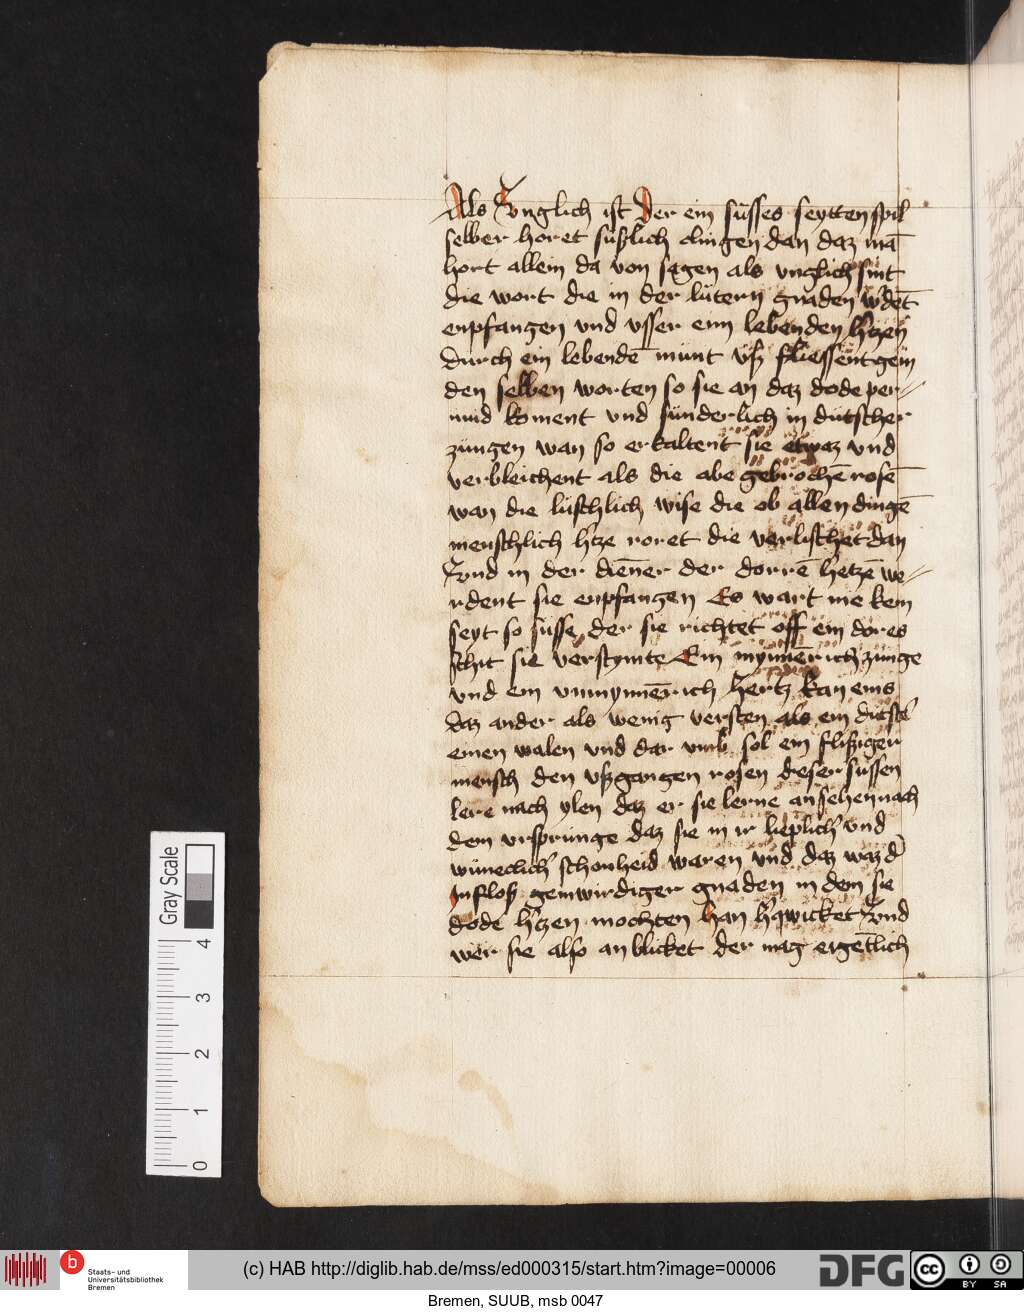 Als Vnglich ist Der ein süsses seytten spil
selber horet süßlich clingen dan daz mā
hort allein da von sagen als vnglich sint
die wort die in der lutern gnaden w'dēt
enpfangen vnd vsser eim lebenden h'tzen
durch ein lebendē munt vß fliessent gein
den selben worten so sie an daz dode per-
mid koment vnd sunderlich in dutscher
zungen wan so erkaltent sie etwez vnd
verbleichent als die abe gebrochē rosē
wan die lustlich wise die ob allen dingē
menschlich h'tze roret die verlischet dan
Vnd in der diener der dorrē hetzē we-
rdent sie enpfangen Es wart nie kein
seyt so susse der sie richtet off ein dores
schit sie verstymte Ein mynnērich zunge
vnd ein vnmynnērich hertz kan eins
daz ander als wenig versten als ein dutsch'
einen walen vnd dar vmb sol ein flißiger
mensch den vßgangen rosen dieser sussen
lere nach ylen daz er sie lerne an sehen nach
dem vrsprunge daz sie in ir lieplich' vnd
wuneclich' schonheid waren vnd daz waz d'
Infloß geinwirdiger gnaden in dem sie
dode h'tzen mochten han h'qwicket Vnd
wer sie also an blicket der mag eigētlich
Gray Scale
4
3
2
1
0
b
Staats- und
Universitätsbibliothek
Bremen
(c) HAB http://diglib.hab.de/mss/ed000315/start.htm?image=00006
DFG
cc BY SA
Bremen, SUUB, msb 0047